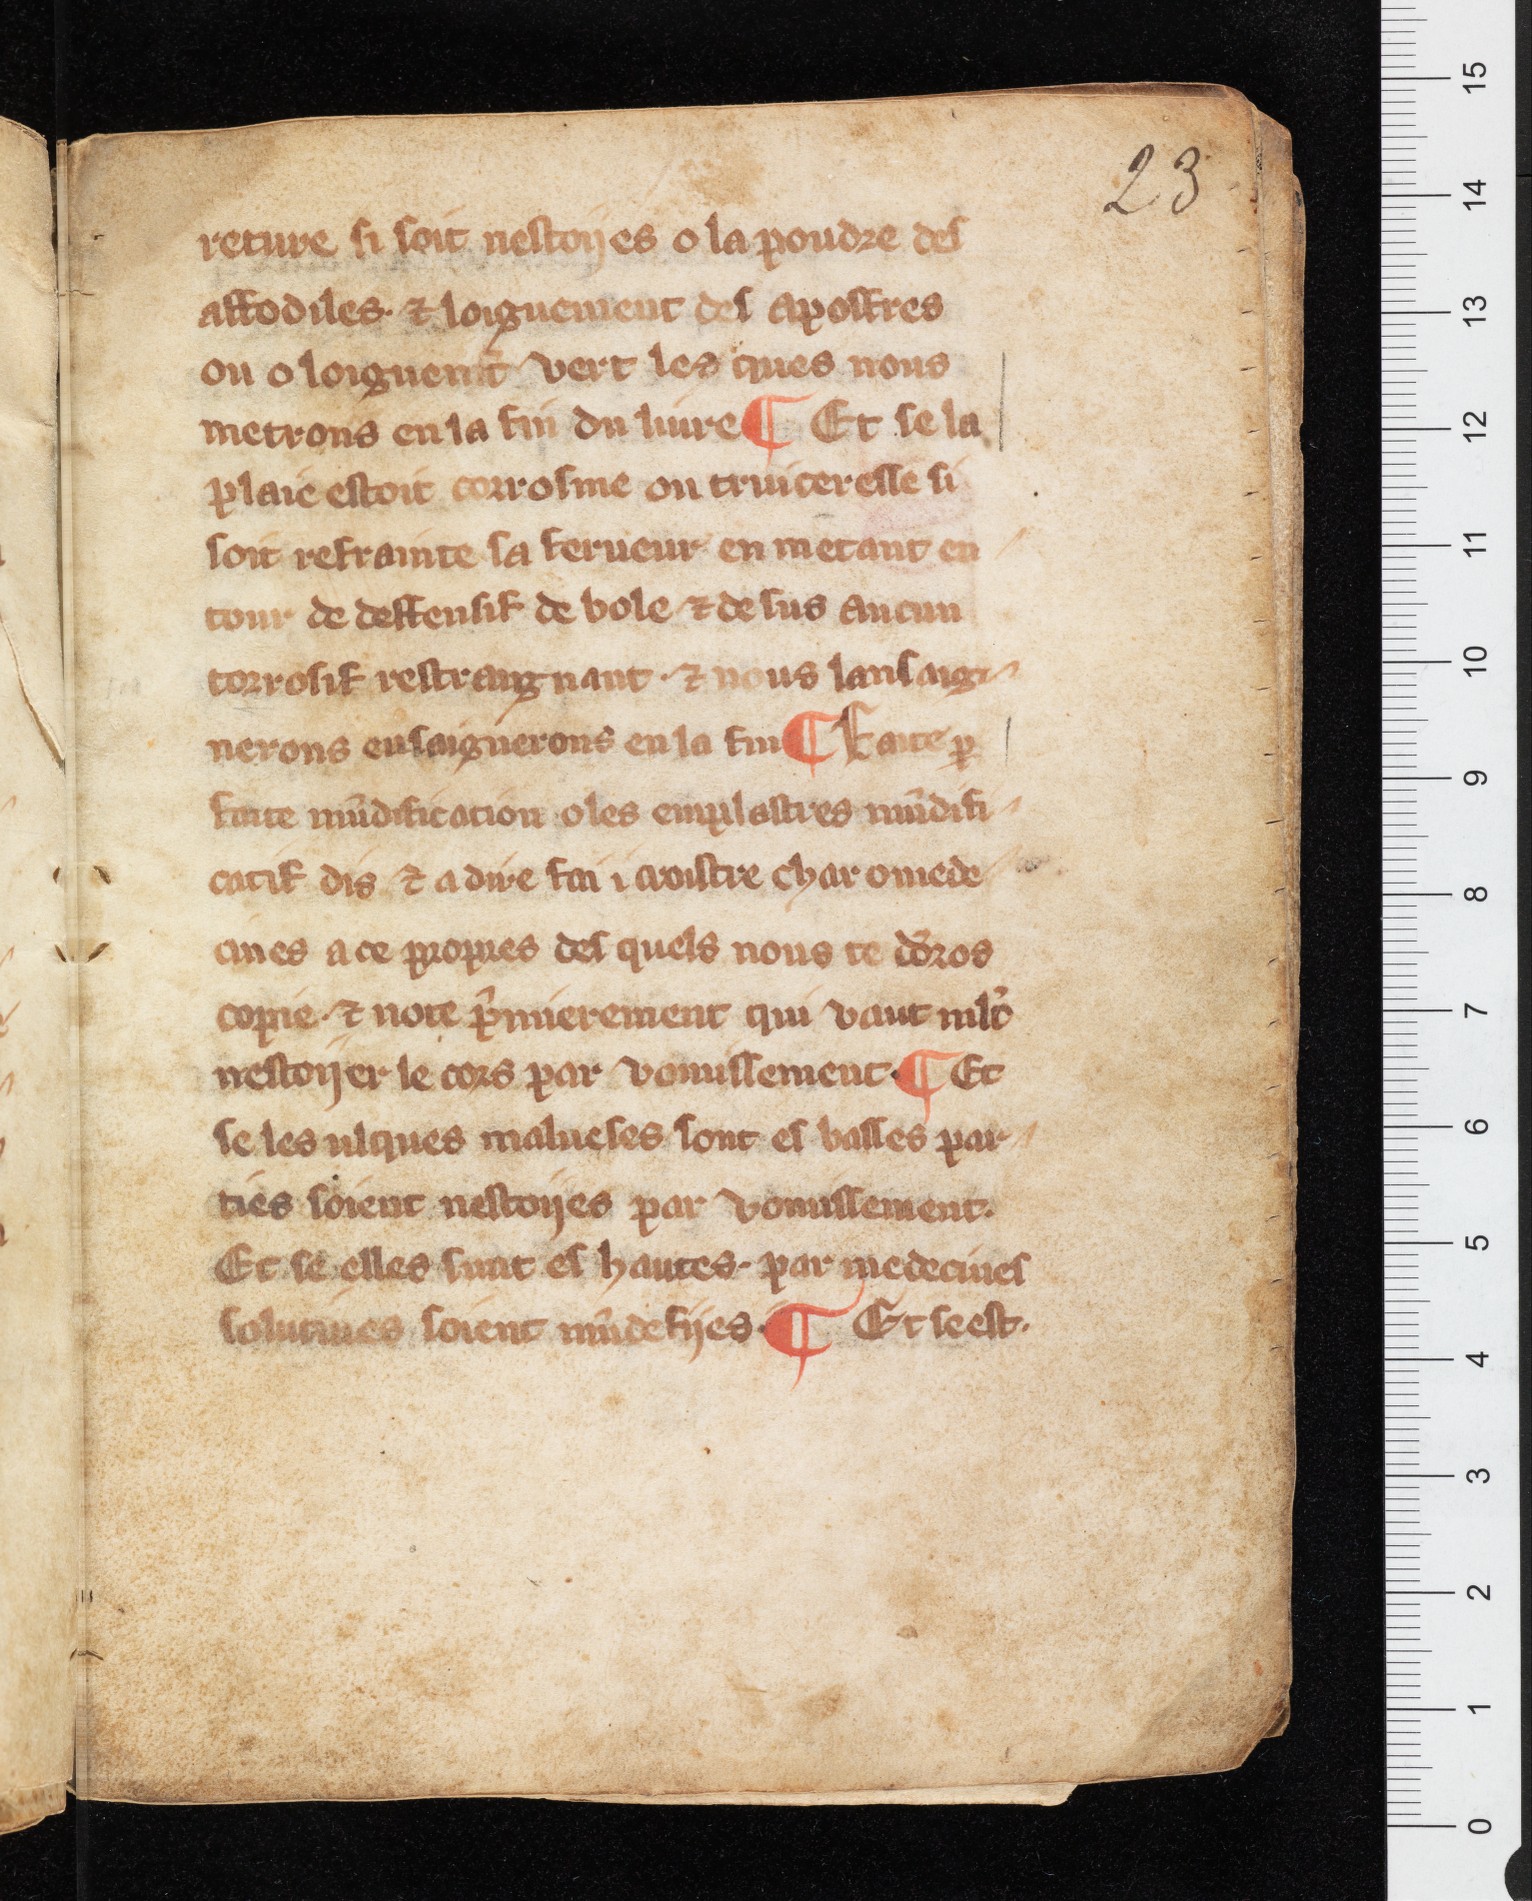 23
reture si soit nestoijes o la poudre des
affodiles. ⁊ loiguement des apostres
ou o loiguemt̄ vert les ques nous
metrons en la fin du liure ¶ Et se la
plaie estoit corrosiue ou truiceresse si
soit refrainte sa ferueur en metant en
tour de deffensif de bole ⁊ de sus aucun
corrosif restraignant. ⁊ nous lansaig
nerons ensaignerons en la fin ¶ Faite ꝑ
faite mūdification o les emplastres mūdifi
catif dis ⁊ a dire fai i croistre char o mede
cines a ce propres des quels nous te dōros
copie. ⁊ note p̄mierement qui vaut mlt̓
nestoijer le cors par vomissement. ¶ Et
se les ulques malueses sont es basses par
ties soient nestoijes par vomissement.
Et se elles sunt es hautes. par medecines
solutiues soient mūdefijes. ¶ Et se est.
15
14
13
12
11
10
9
8
7
6
5
4
3
2
1
0